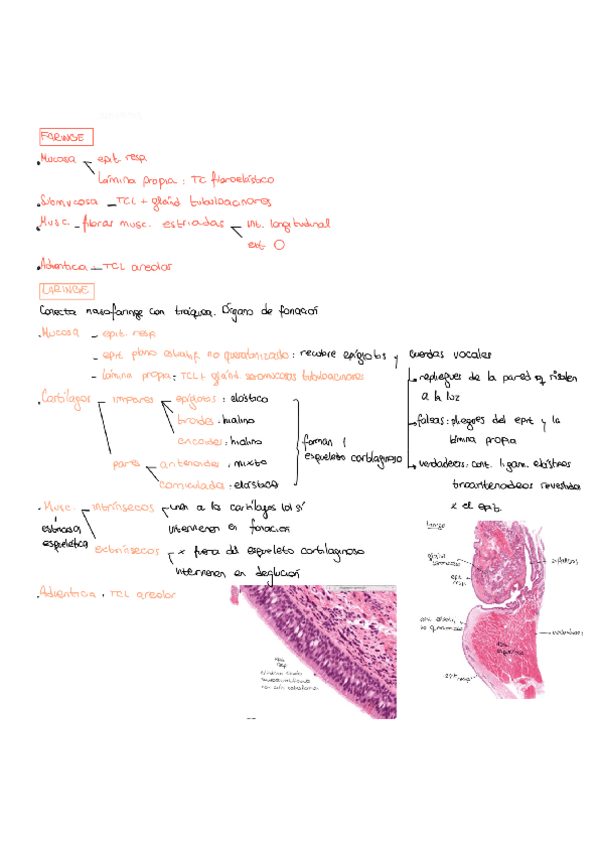 FARINGE
. Mucosa - epit. resp.
lámina propia : TC fibroelástico
. Submucosa - TCL + gland tubuloacinares
. Musc. - fibras musc. estriadas - int. longitudinal
ext. O
. Adventicia - TCL areolar
LARINGE
Conecta nasofaringe con tráquea. Órgano de fonación
. Mucosa - epit. resp.
- epit. plano estratif. no queratinizado : recubre epiglotis y cuerdas vocales
- lámina propia : TCL + gland. seromucosas tubuloacinares
repliegues de la pared q
a la luz
. Cartílagos - impares - epiglotis : elástico
tiroides : hialino
cricoides : hialino
pares - aritenoides : mixto
corniculados : elástico
forman
esqueleto cartilaginoso
falsas : pliegues del epit y la
lámina propia
verdaderas : cont. ligam. elásticos
tiroaritenoideos revestidos
x el epit.
. Musc. estriada esquelética - intrínsecos - unen a los cartílagos
intervienen en fonación
extrínsecos - x fuera del esqueleto cartilaginoso
intervienen en deglución
. Adventicia . TCL areolar
laringe
epit.
resp.
falsas
verdaderas
epit. resp.
epit.
resp.